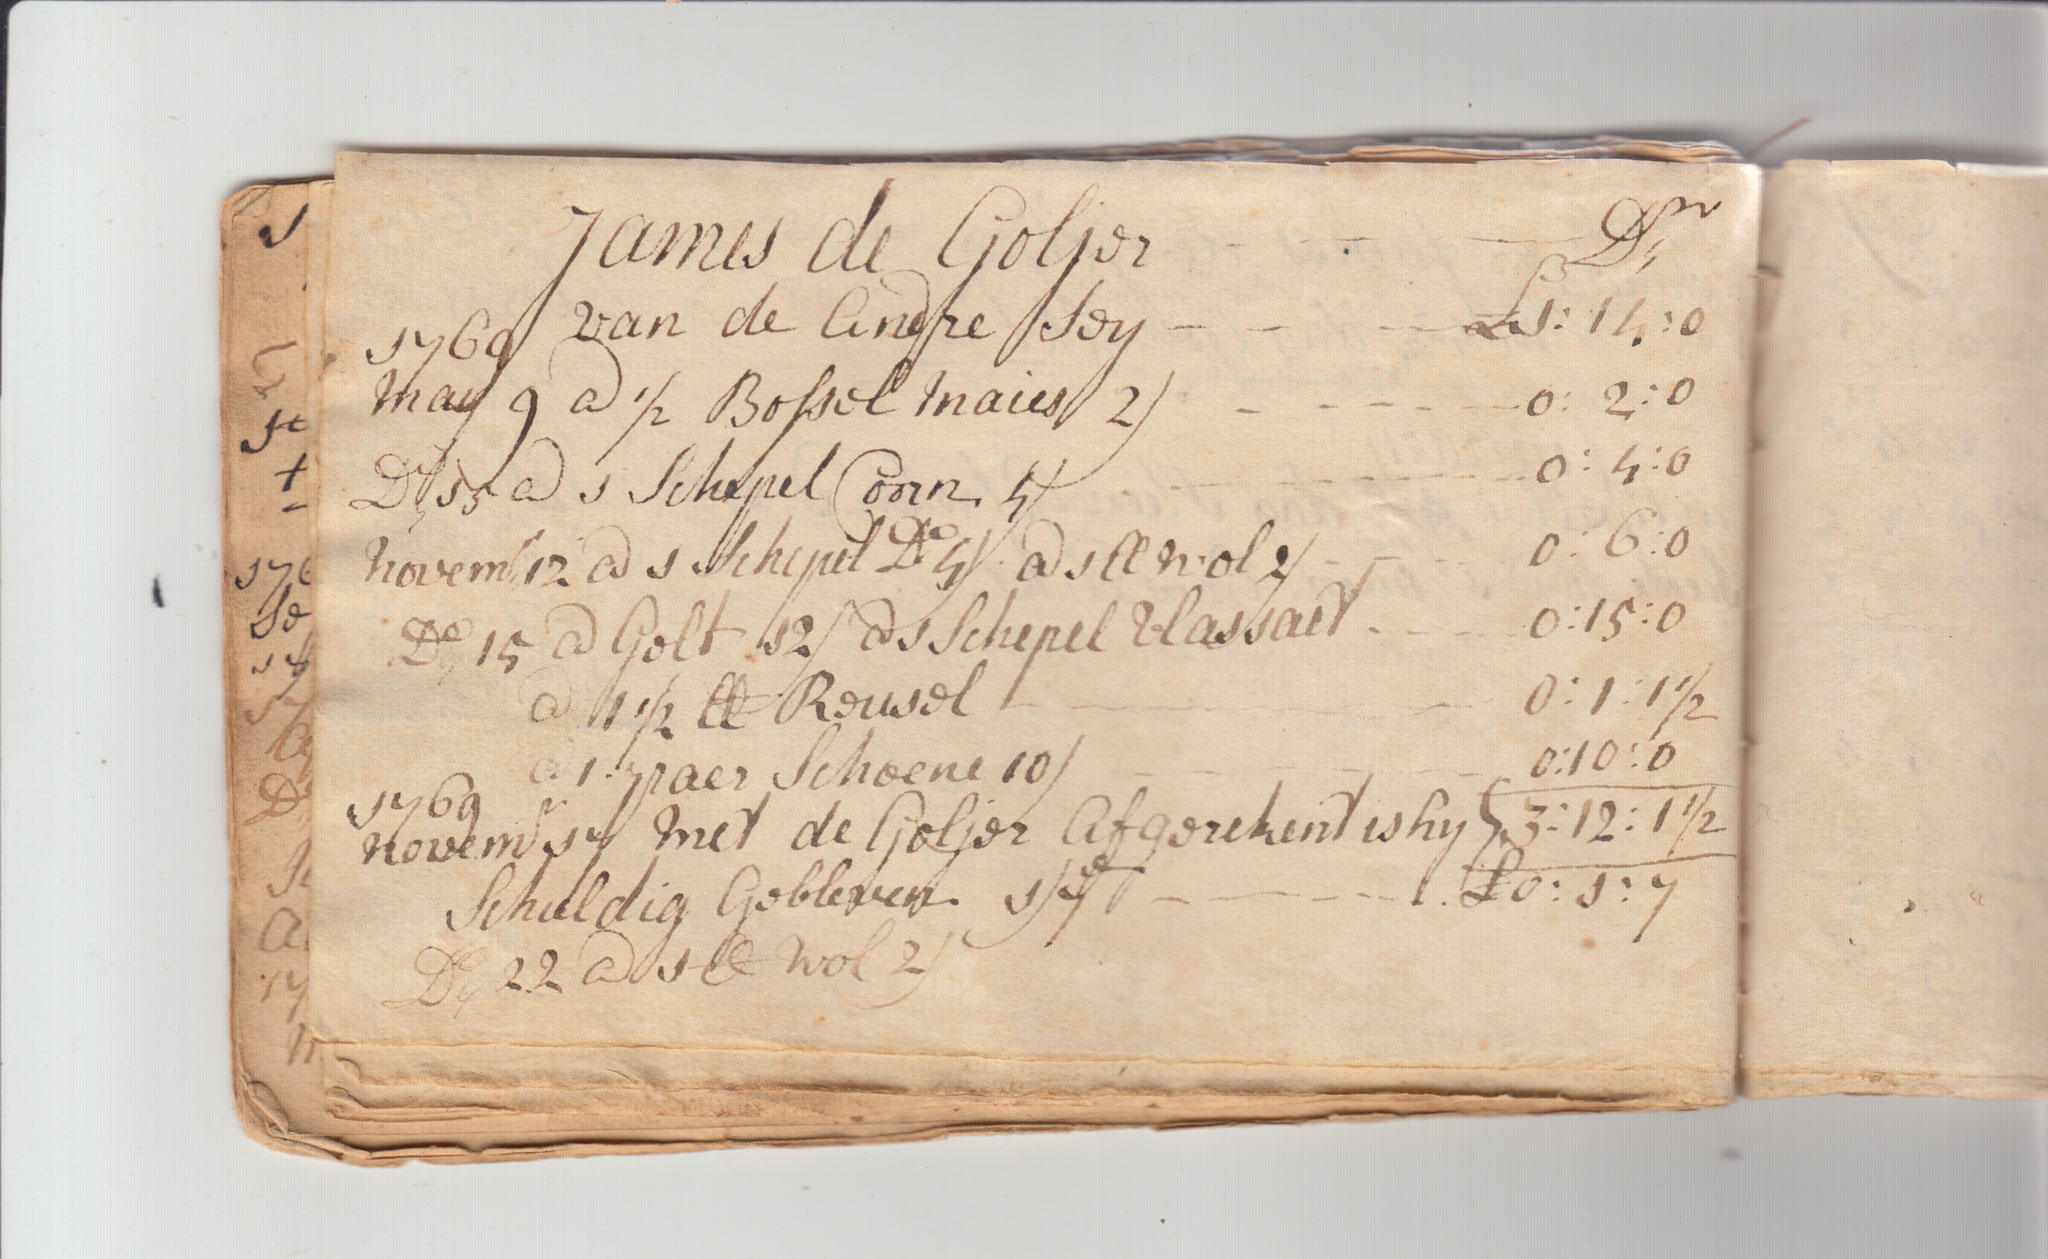 James de Goljer - - - Dr
van de Andre sey - - - £1: 14: 0
1769
may 9 @ 1/2 Bossel maies 2/ - - - 0: 2: 0
Do 15 @ 1 Schepel Corn 4/ - - - 0: 4: 0
novemr 12 @ 1 Schepel Do 4/ @ 1 ℔ wol 2/ - - - 0: 6: 0
Do 15 @ Golt 12/ @ 1 Schepel vlassaet - - - 0: 15: 0
@ 1 1/2 ℔ Reusel - - - 0: 1: 1 1/2
@ 1 paer Schoene 10/ - - - 0: 10: 0
1769
novemr 17 met de Goljer Afgerekent is hy } 3: 12: 1 1/2
Schuldig Gebleven 1/7 - - - £0: 1: 7
Do 22 @ 1 ℔ wol 2/